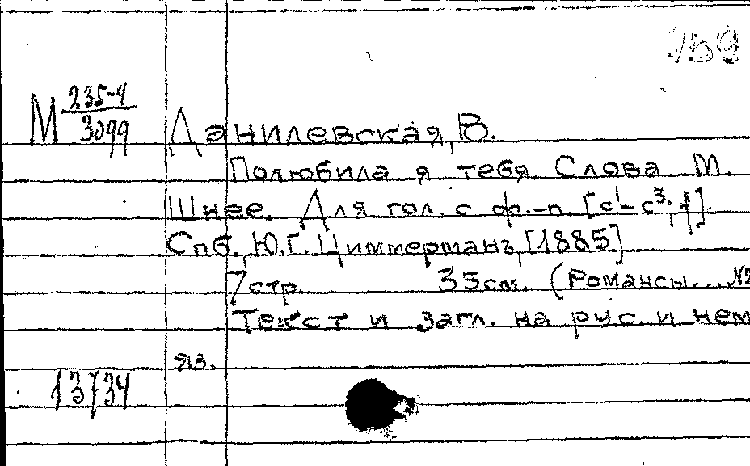 159
М 235-4
3099
Данилевская, В.
Полюбила я тебя. Слова М.
Шнее. Для гол. с ф.-п.
Спб., Ю.Г. Циммерманъ, [1885]
7 стр. 33 см. (Романсы... №2
Текст и загл. на рус. и нем
яз.
13734